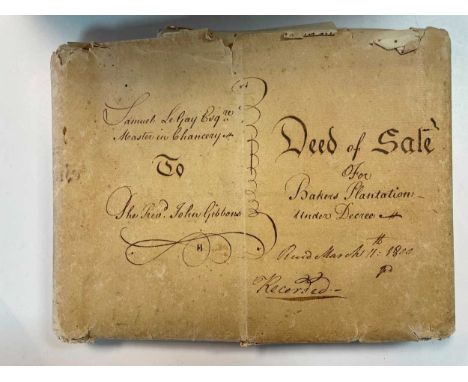 Samuel Le Gay Esq.re
Master in Chancery
To
The Revd. John Gibbons
Deed of Sale
For
Bakers Plantation
Under Decree
March 7th 1800
Recorded